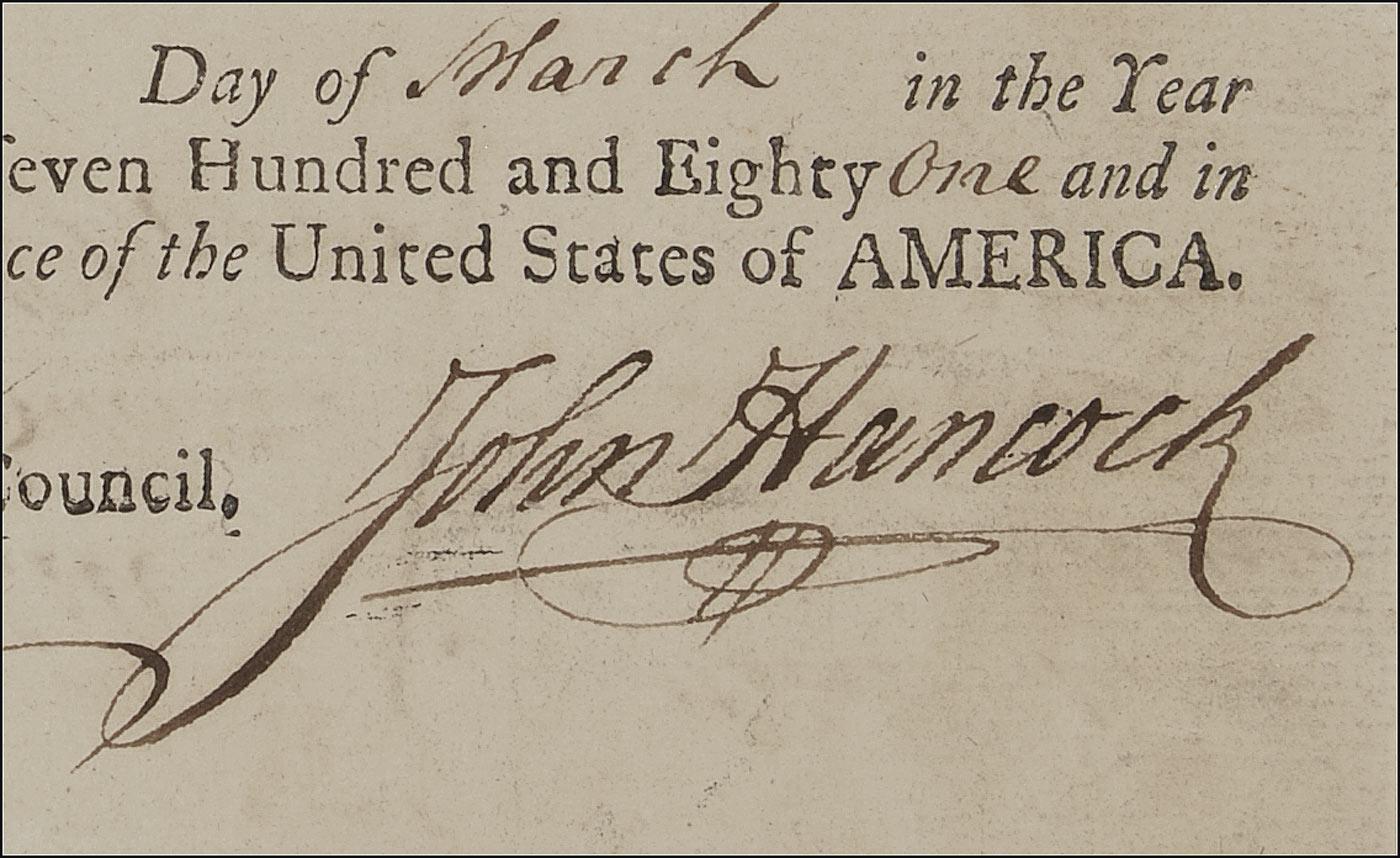 Day of March in the Year
seven Hundred and Eighty One and in
ce of the United States of AMERICA.
Council,
John Hancock